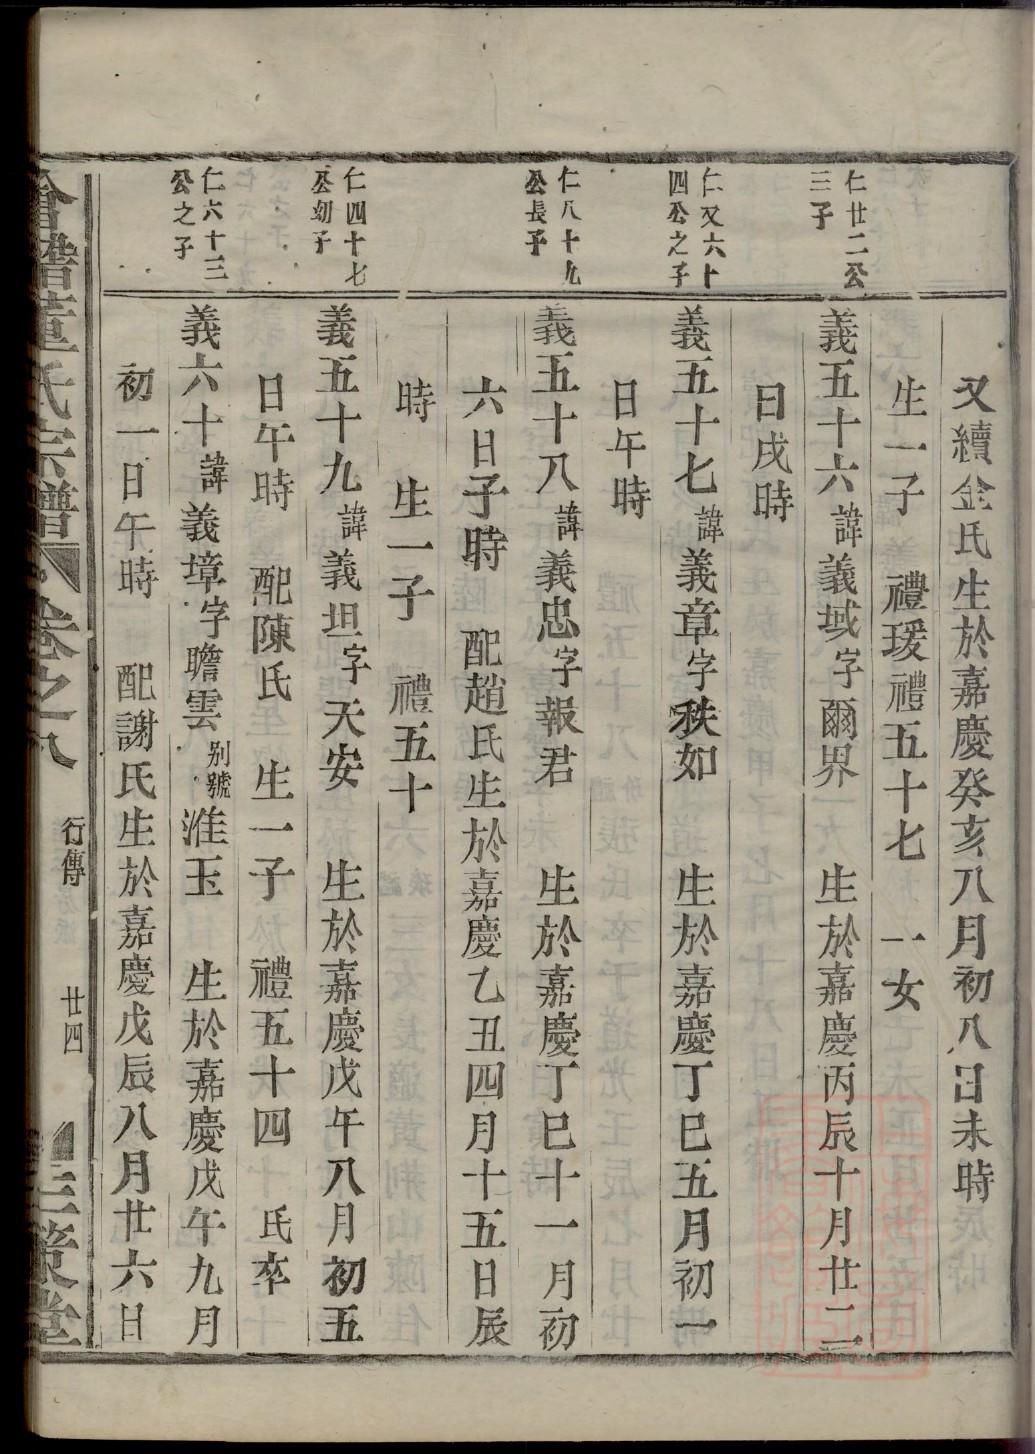 又續金氏生於嘉慶癸亥八月初八日未時
生一子 禮瑗禮五十七 一女
仁廿二公
三子
義五十六諱義域字爾界 生於嘉慶丙辰十月廿二
日戌時
仁又六十
四公之子
義五十七諱義章字秩如 生於嘉慶丁巳五月初一
日午時
仁八十九
公長子
義五十八諱義忠字報君 生於嘉慶丁巳十一月初
六日子時 配趙氏生於嘉慶乙丑四月十五日辰
時 生一子 禮五十
仁四十七
公幼子
義五十九諱義坦字天安 生於嘉慶戊午八月初五
日午時 配陳氏 生一子 禮五十四 氏卒
仁六十三
公之子
義六十諱義墇字瞻雲別號淮玉 生於嘉慶戊午九月
初一日午時 配謝氏生於嘉慶戊辰八月廿六日
會稽董氏宗譜 卷之八 行傳 廿四 三策堂